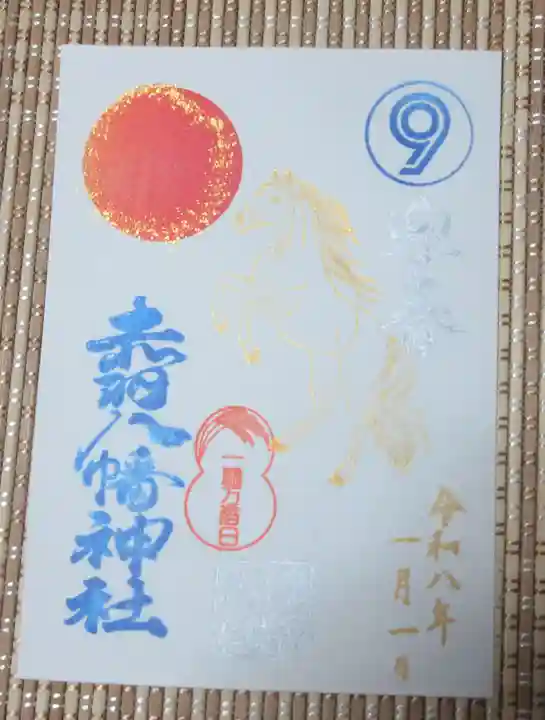 9
迎春
令和八年
一月一日
一粒万倍日
赤羽八幡神社